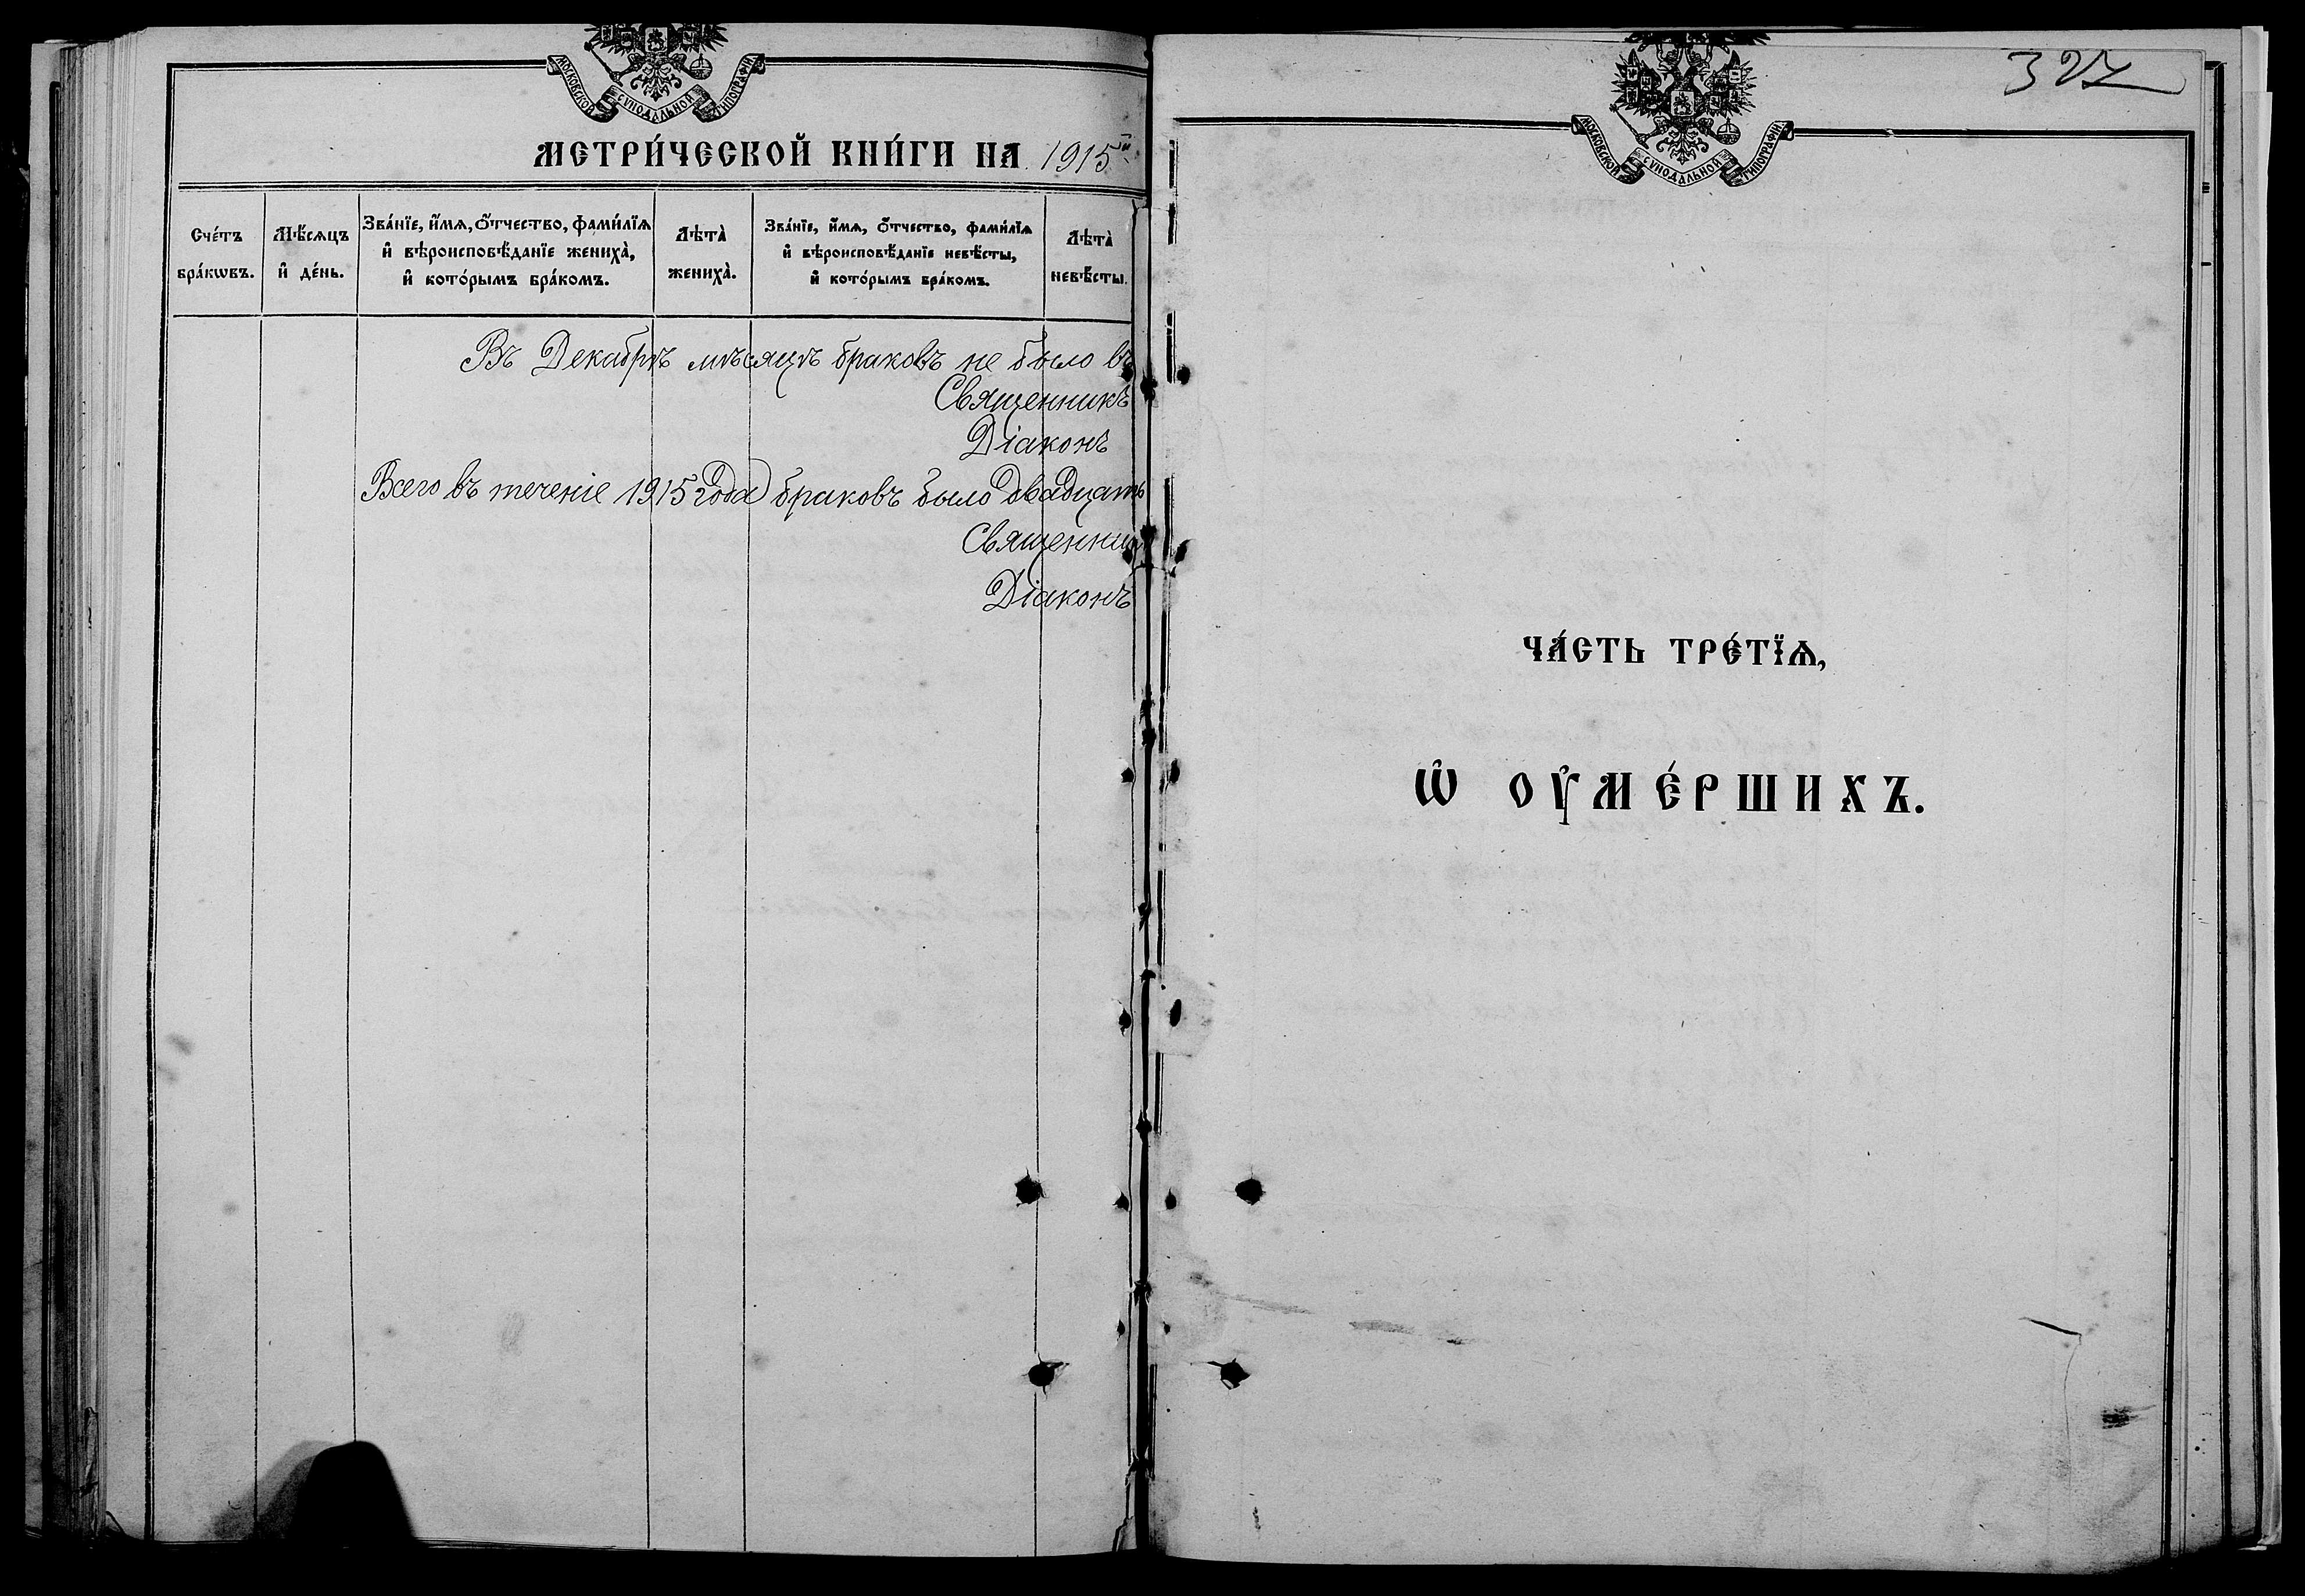 МОСКОВСКОЙ СѴНОДАЛЬНОЙ ТИПОГРАФІИ
МЕТРИ́ЧЕСКОЙ КНИ́ГИ НА 1915й
Сче́тъ бра́кѡвъ.
Мѣ́сяцъ и҆ де́нь.
Зва́нїе, и҆́мѧ, ѻ҆́тчество, фами́лїѧ
и҆ вѣроисповѣ́данїе жениха̀,
и҆ кото́рымъ бра́комъ.
Лѣта̀ жениха̀.
Зва́нїе, и҆́мѧ, ѻ҆́тчество, фами́лїѧ
и҆ вѣроисповѣ́данїе невѣ́сты,
и҆ кото́рымъ бра́комъ.
Лѣта̀ невѣ́сты.
Въ Декабрѣ мѣсяцѣ браковъ не было въ
Священникъ
Діаконъ
Всего въ теченіе 1915 года браковъ было двадцать
Священни
Діаконъ
327
МОСКОВСКОЙ СѴНОДАЛЬНОЙ ТИПОГРАФІИ
ЧА́СТЬ ТРЕ́ТЇѦ,
Ѡ҆ ОУ҆МЕ́РШИХЪ.